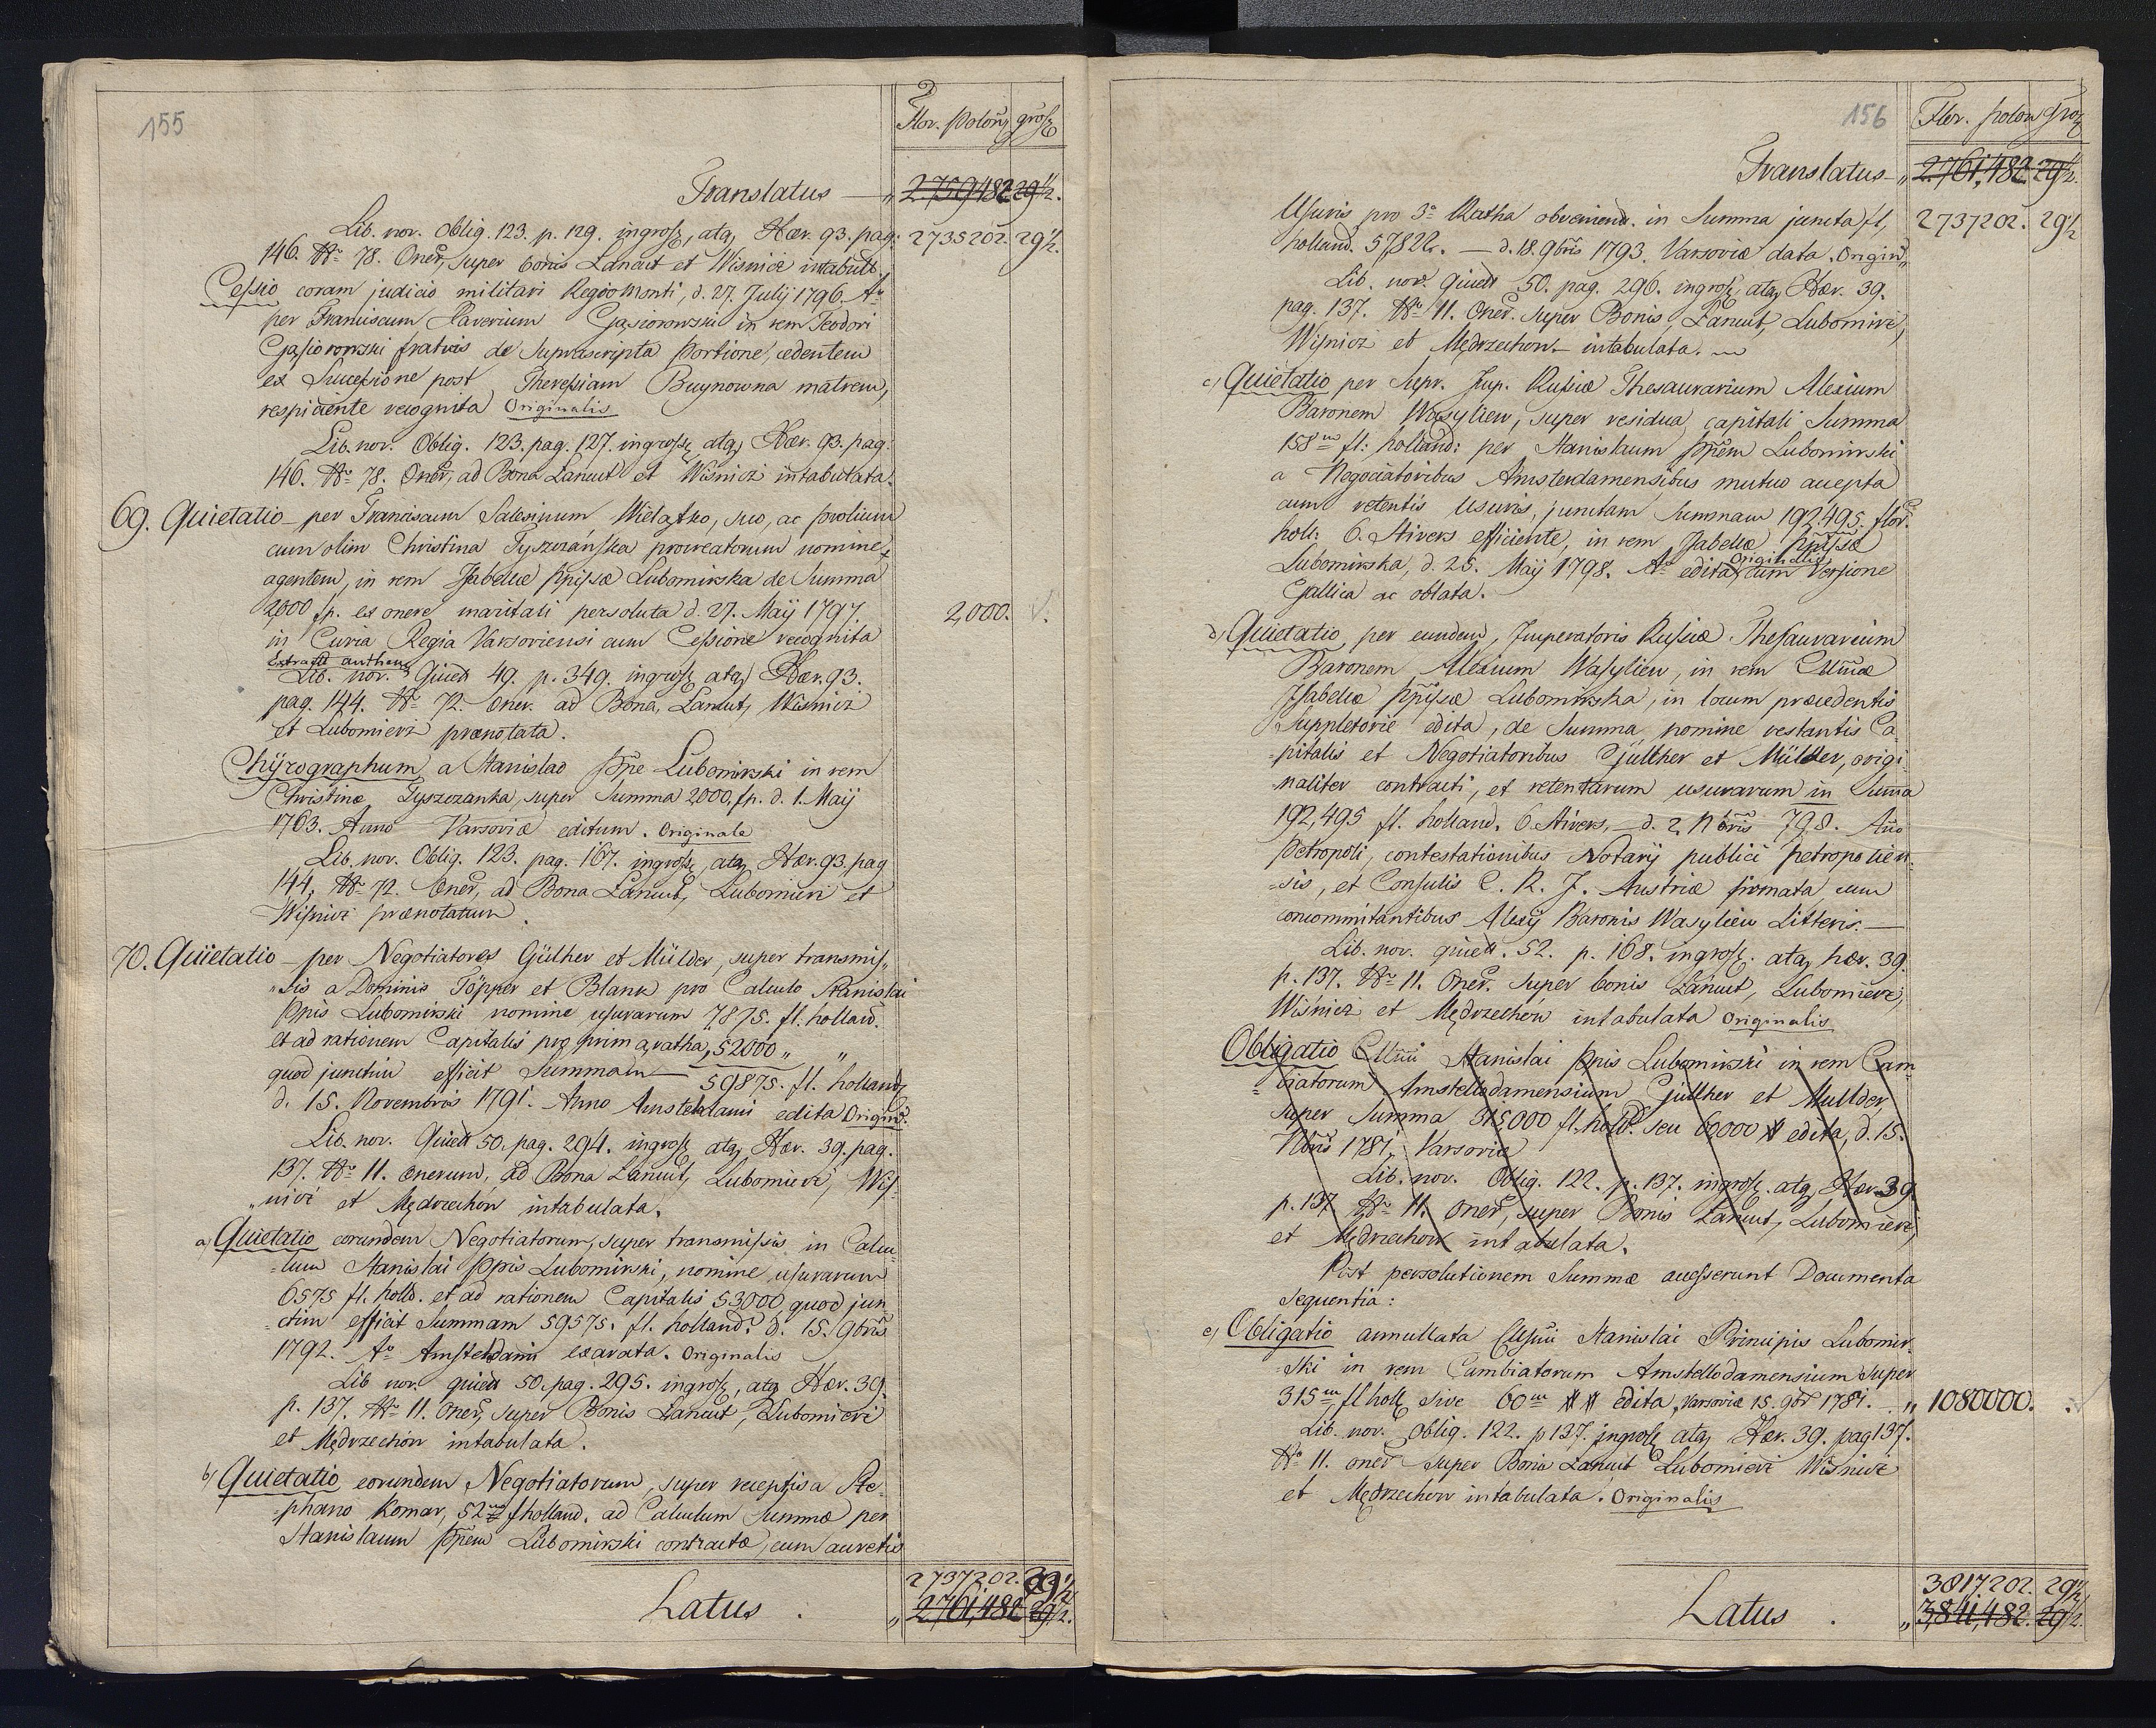 155
Flor. polon. gross.
Translatus — „ 2759482 29½.
Lib. nor. Oblig. 123. p. 129. ingross, atq Hær. 93. pag: 2735202. 29½.
146. Nr 78. Oner, super bonis Lancut et Wisnicz intabult.
Cessio coram judicio militari Regiomonti, d. 27. July 1796. Ao
per Franciscum Xaverium Gąsiorowski in rem Teodori
Gąsiorowski fratris de Suprascripta Portione, cedentem
ex Sucessione post Theressiam Buynowna matrem,
respiciente recognita Originalis
Lib. nor. Oblig. 123. pag. 127. ingross, atq Hær. 93. pag:
146. Nr 78. Oner, ad Bona Lancut et Wisnicz intabulata.
69. Quietatio per Franciscum Salesium Wielatko, suo, ac prolium
cum olim Christina Tyszezańska procreatorum nomine
agentem, in rem Isabellæ Ppissæ Lubomirska de Summa
2000 fp. ex onere maritali persoluta d. 27. Maij 1797. 2,000.
in Curia Regia Varsoviensi cum Cessione recognita
Extract authent
Lib. nor. Quiett 49. p. 349. ingross atq Hær. 93.
pag. 144. Nr 72. Oner. ad Bona, Lancut, Wisnicz
et Lubomierz prænotata.
Chyrographum a Stanislao Ppe Lubomirski in rem
Christinæ Tyszezanka, super Summa 2000. fp. d. 1. Maij
1763. Anno Varsoviæ editum. Originale
Lib. nor. Oblig. 123. pag. 167. ingross, atq Hær. 93. pag
144. Nr 72. Oner, ad Bona Lancut, Lubomierz et
Wisnicz prænotatum.
70. Quietatio per Negotiatores Gülher et Mülder, super transmis„
„sis a Dominis Töpper et Blank pro Calculo Stanislai
Ppis Lubomirski nomine usurarum 7875. fl. holland.
et ad rationem Capitalis pro prima ratha, 52000 „ „
quod junctim efficit Summam — 59875. fl. holland
d. 15. Novembris 1791. Anno Amstelldami edita Origin.
Lib. nor. Quiett 50. pag. 294. ingross, atq Hær. 39. pag.
137. Nr 11. Onerum, ad Bona Lancut, Lubomierz, Wis-
„nicz et Mędrzechów intabulata.
a) Quietatio eorundem Negotiatorum, super transmissis in Calcu-
=lum Stanislai Ppis Lubomirski, nomine usurarum
6575 fl. holld. et ad rationem Capitalis 53000, quod jun
=ctim efficit Summam 59575. fl. holland. d. 15. 9bris
1792. Ao Amsteldami exarata. Originalis
Lib nor. quiett 50. pag. 295. ingross, atq Hær. 39.
p. 137. Nr 11. Oner, super Bonis Lancut, Lubomierz
et Mędrzechów intabulata.
b) Quietatio eorundem Negotiatorum, super receptis a Ste-
=phano Komar, 52m fholland. ad Calculum Summæ per
Stanislaum Ppem Lubomirski contractæ, cum auretis
2737202. 29½
Latus . „ 2,761,482 29½.
156
Flor. polon Gros
Translatus „ 2.761,482. 29½.
Usuris pro 3a Ratha obveniend. in Summa juncta fl, 2737202. 29½
holland. 57822. — d. 18. 9bris 1793. Varsoviæ data. Origin
Lib. nor. Quiett 50. pag. 296. ingross, atq Hær. 39.
pag. 137. Nr 11. Oner. super Bonis, Lancut, Lubomirz,
Wisnicz et Mędrzechow intabulata.
c) Quietatio per Supr. Imp. Russiæ Thesaurarium Alexium
Baronem Wasyliew, super residua, capitali Summa
158m fl: holland: per Stanislaum Ppem Lubomirski
a Negociatoribus Amsterdamensibus mutuo accepta
cum retentis Usuris, junctam Summam 192,495. flor.
holl: 6. Stivers efficiente, in rem Isabellæ Ppissæ
Lubomirska, d. 25. Maij 1798. Ao edita Originalis cum Versione
Gallica ac oblata.
d) Quietatio, per eundem, Imperatoris Russiæ Thesaurarium
Baronem Alexium Wasyliew, in rem Cllmæ
Isabellæ Ppissæ Lubomirska, in locum præcedentis
Suppletorie edita, de Summa, nomine restantis Ca
=pitalis et Negotiatoribus Güllher et Mülder, origi
=naliter contracti, et retentarum usurarum in Summa
192,495 fl. holland. 6. Stivers, — d. 2 Nbris 798. Ano
Petropoli, contestationibus Notarij publici Petropolien
=sis, et Consulis C. R. J. Austriæ firmata cum
concommitantibus Alexij Baronis Wasyliew Litteris. —
Lib. nor. quiett. 52. p. 168. ingross. atq hær. 39.
p. 137. Nr 11. Oner. super bonis Lancut, Lubomierz,
Wisnicz et Mędrzechów intabulata Originalis
Obligatio Cllmi Stanislai Ppis Lubomirski in rem Cam-
=biatorum Amstellodamensium Güllher et Mullder,
super Summa 315,000 fl. holld. seu 60000 # edita, d. 15.
Nbris 1781, Varsoviæ
Lib. nor. Oblig. 122. p. 137. ingross. atq Hær. 39
p. 137 Nr 11. oner, super Bonis Lancut, Lubomierz,
et Mędrzechow intabulata.
Post persolutionem Summæ accesserunt Documenta
sequentia:
e) Obligatio annullata Cllsmi Stanislai Principis Lubomir-
ski in rem Cambiatorum Amstellodamensium super
315m fl holl sive 60m ## edita, Varsoviæ 15. 9br 1781. „ 1080000.
Lib. nor. Oblig. 122. p 137. ingross atq Hær. 39. pag 137.
Nr 11. oner super Bonis Lancut Lubomierz Wisnicz
et Mędrzechow intabulata. Originalis
3817202. 29½
Latus . „ 3,841,482. 29½.